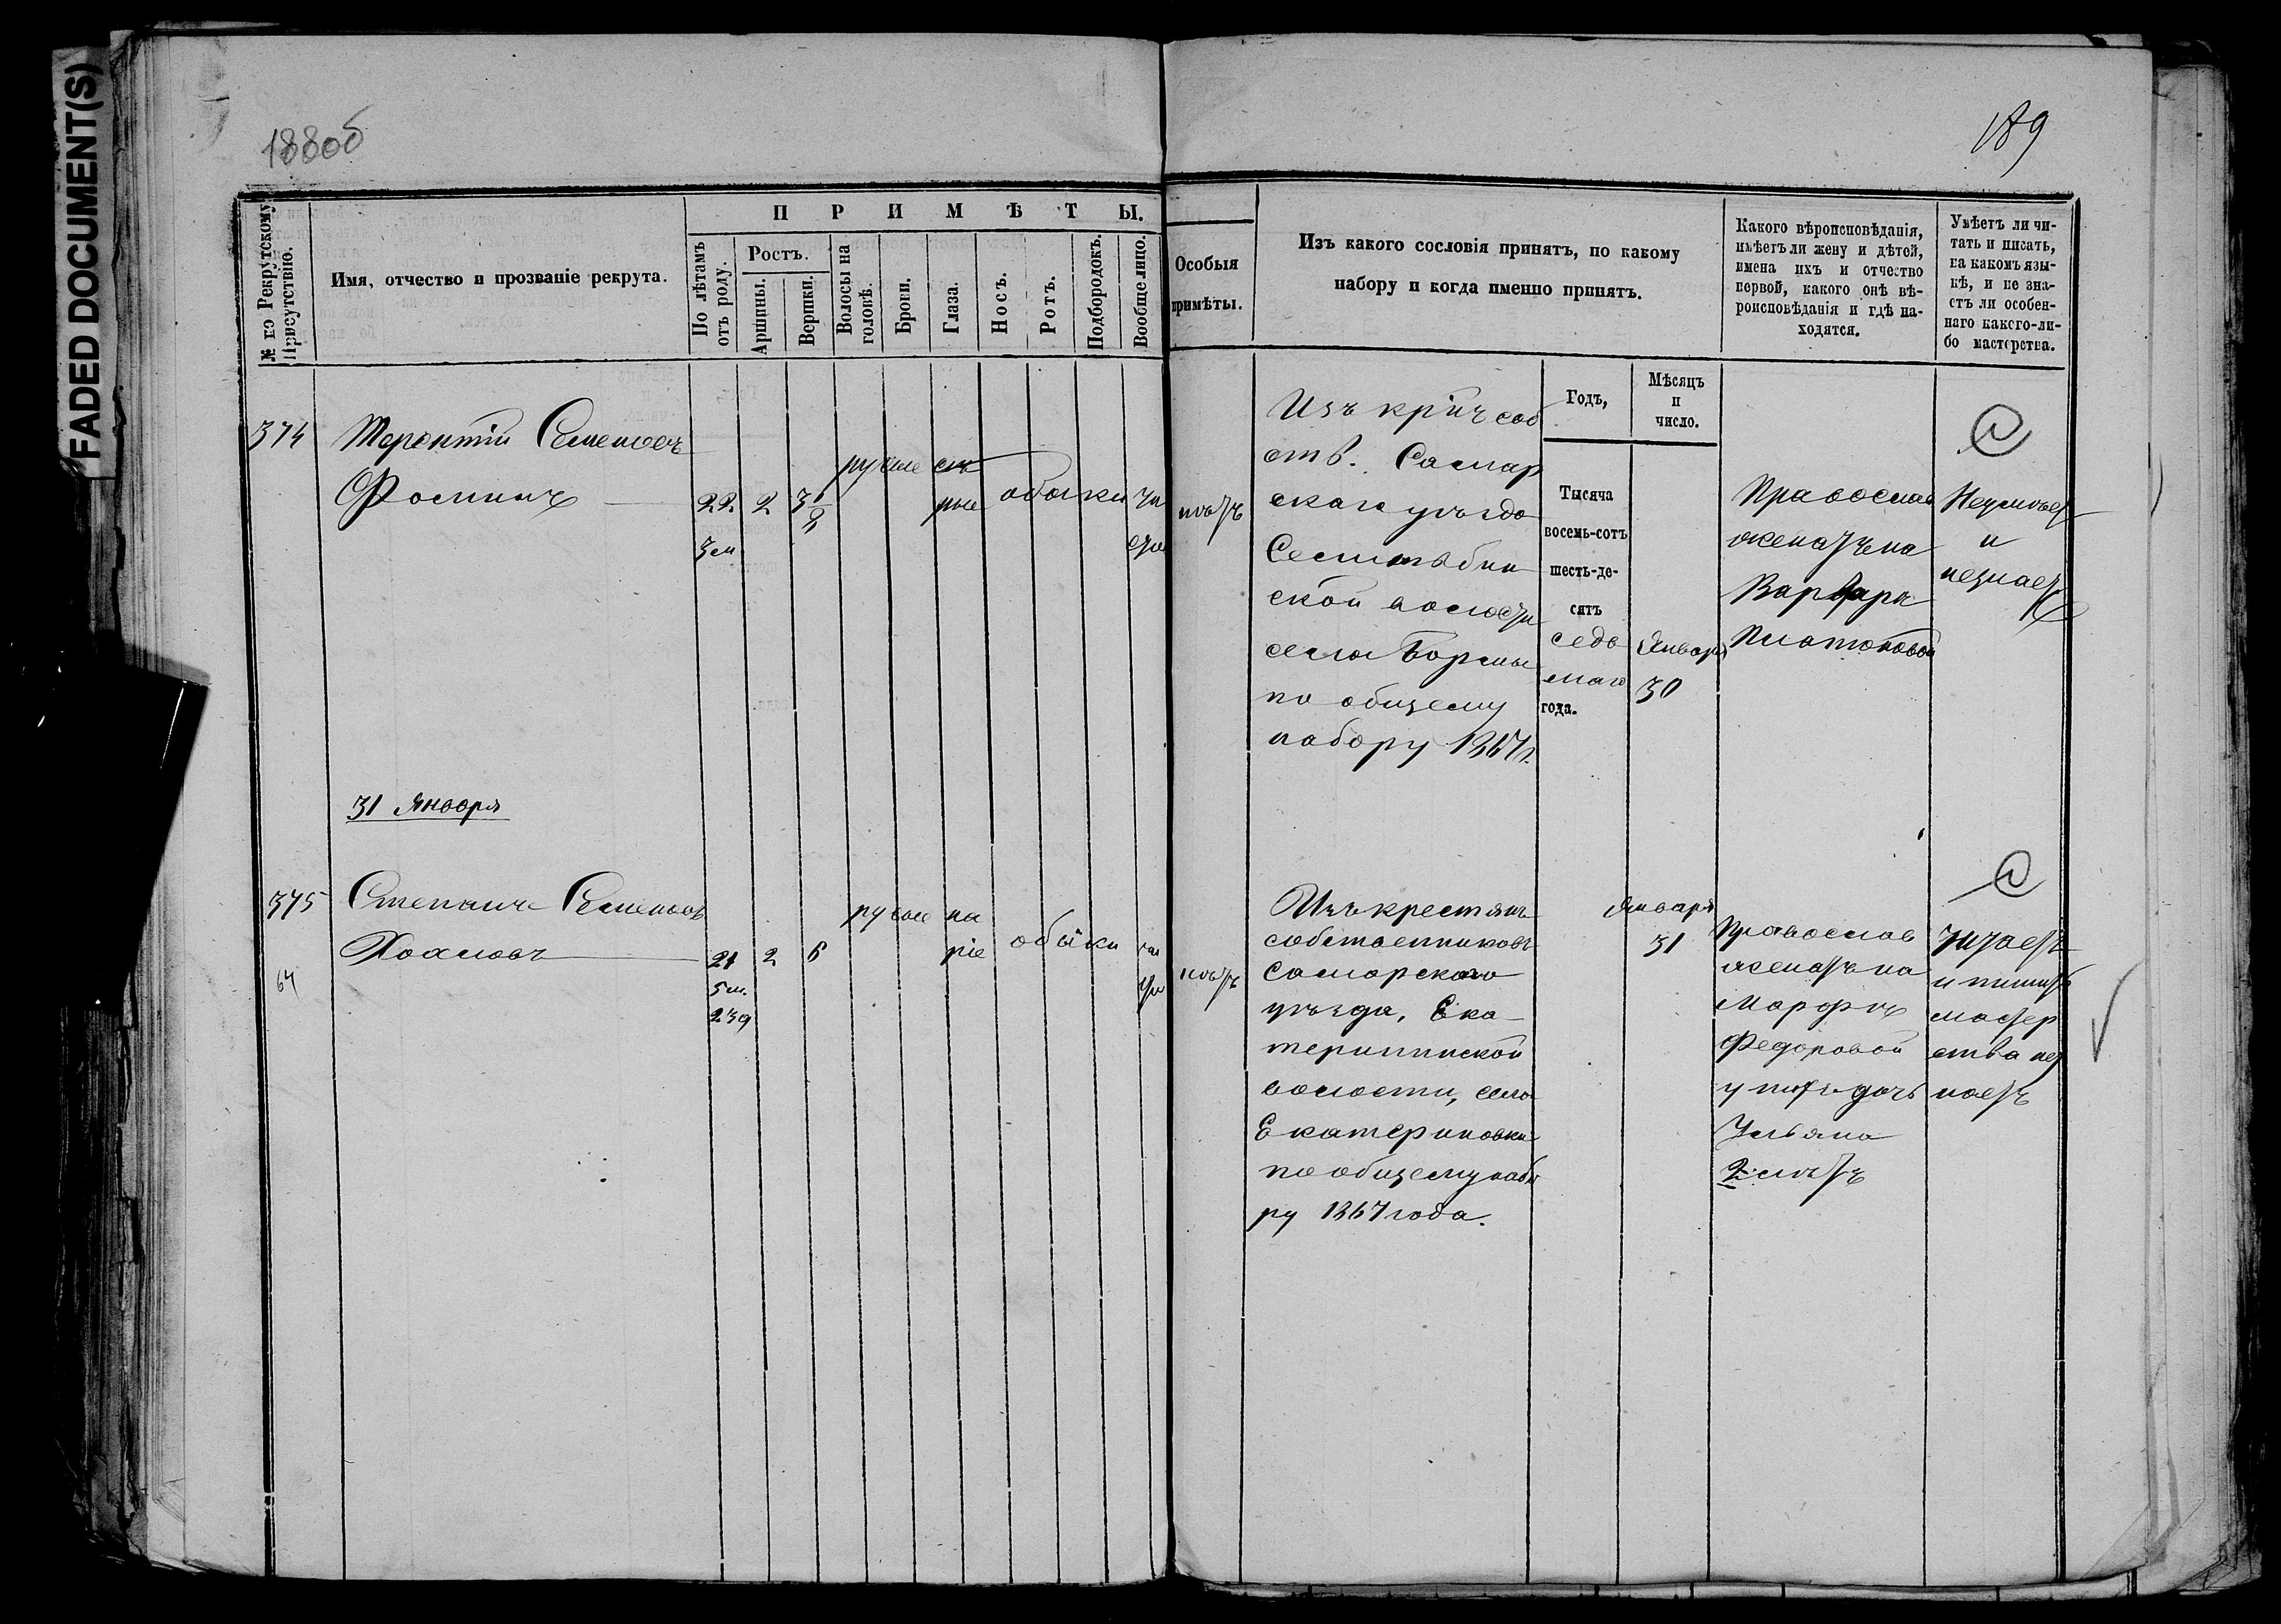 FADED DOCUMENT(S)
188об
189
№ по Рекрутскому Присутствію.
Имя, отчество и прозваніе рекрута.
ПРИМѢТЫ.
По лѣтамъ отъ роду.
Ростъ.
Аршины.
Вершки.
Волосы на головѣ.
Брови.
Глаза.
Носъ.
Ротъ.
Подбородокъ.
Вообще лицо.
Особыя
примѣты.
Изъ какого сословія принятъ, по какому
набору и когда именно принятъ.
Какого вѣроисповѣданія,
имѣетъ ли жену и дѣтей,
имена ихъ и отчество
первой, какого онѣ вѣ-
роисповѣданія и гдѣ на-
ходятся.
Умѣетъ ли чи-
тать и писать,
на какомъ язы-
кѣ, и не зна-
етъ ли особен-
наго какого-ли-
бо мастерства.
Годъ,
Мѣсяцъ
и
число.
374
Терентій Семеновъ
Фоминъ
22
3 м
2
3
русые
сѣ
рые
обыкн
чи
стое
нѣтъ
Изъ
соб
ств. Самар
скаго уѣзда
ской волости
села
по общему
набору 1867 г.
Тысяча
восемь-сотъ
шесть-де-
сятъ
седь
маго
года.
Января
30
Православ
женатъ на
Варварѣ
Платоновой
Неумѣет
и
незнает
31 Января
375
64
Степанъ Семеновъ
Хохловъ
21
5 м.
23 д
2
6
русые
ка
ріе
обыкн
чис
тое
нѣтъ
Изъ крестянъ
собственниковъ
Самарскаго
уѣзда, Ека
терининской
волости, села
Екатериновки
по общему набо
ру 1867 года.
Января
31
Православ
женатъ на
Марфѣ
Федоровой
у нихъ дочь
Ульяна
2 лѣтъ
Читаетъ
и пишитъ
мастер
ства нез
наетъ